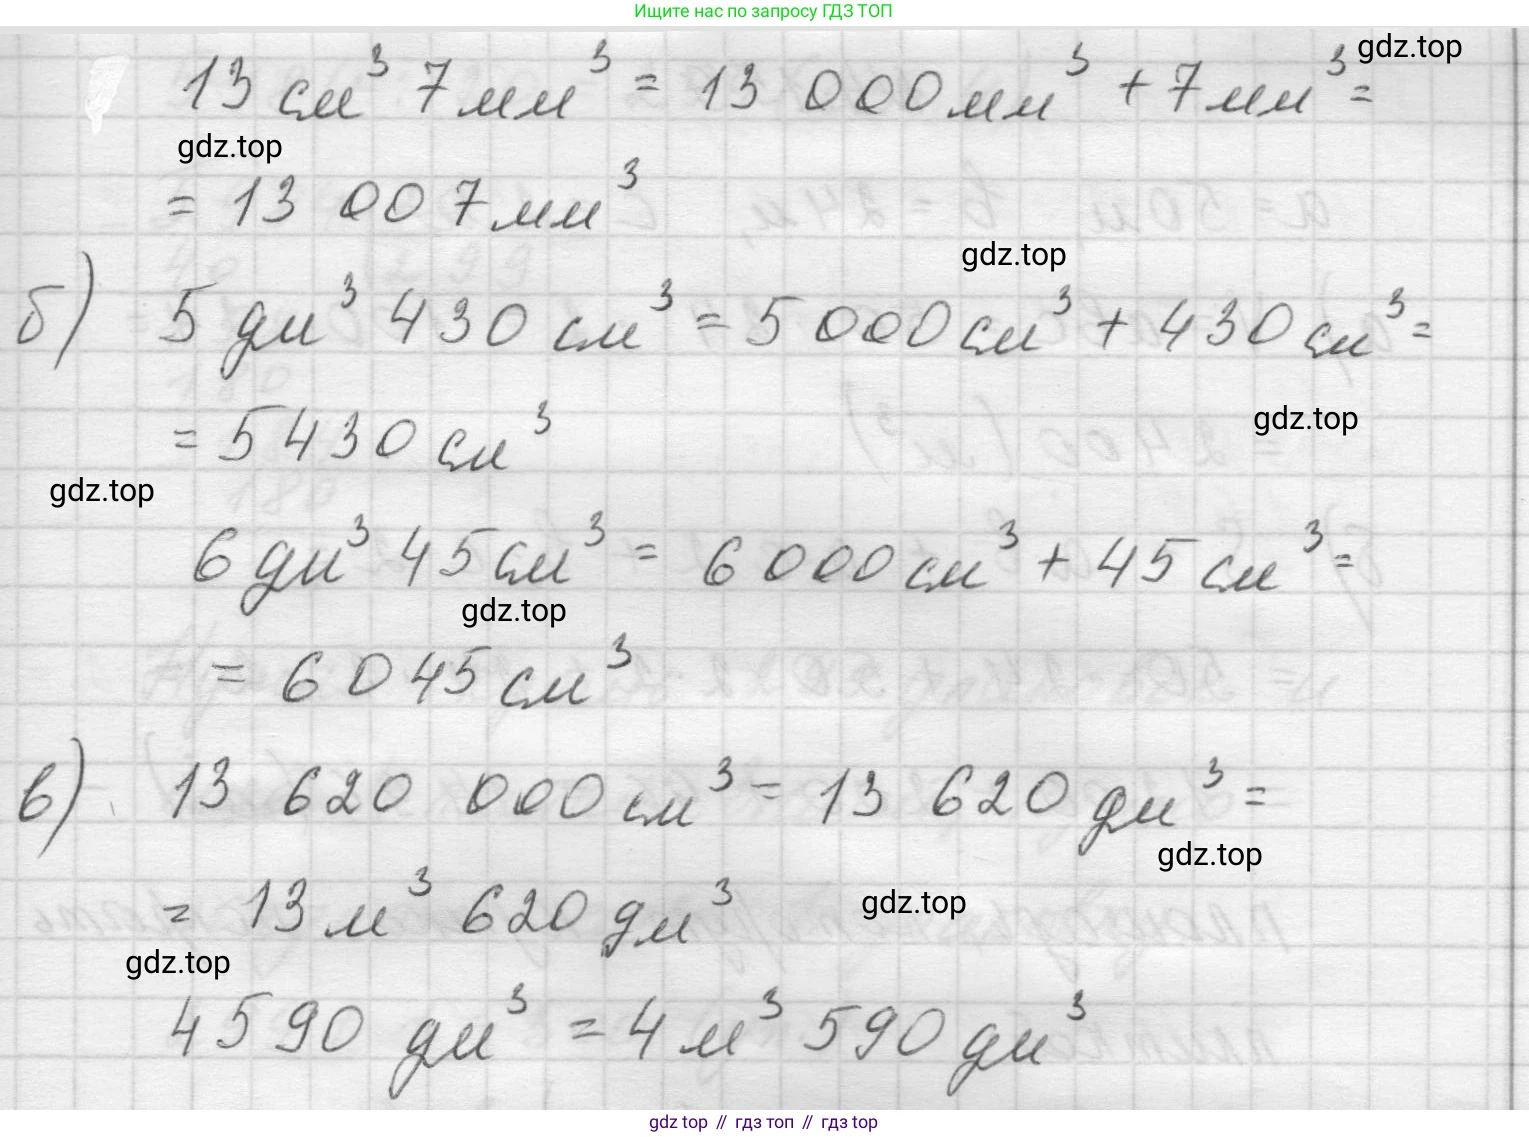 Ищите нас по запросу ГДЗ ТОП
13 см³ 7 мм³ = 13 000 мм³ + 7 мм³ =
gdz.top
gdz.top
= 13 007 мм³
gdz.top
б) 5 дм³ 430 см³ = 5 000 см³ + 430 см³ =
= 5 430 см³
gdz.top
gdz.top
6 дм³ 45 см³ = 6 000 см³ + 45 см³ =
gdz.top
= 6 045 см³
в) 13 620 000 см³ = 13 620 дм³ =
gdz.top
= 13 м³ 620 дм³
gdz.top
gdz.top
4 590 дм³ = 4 м³ 590 дм³
gdz.top // гдз топ // гдз top